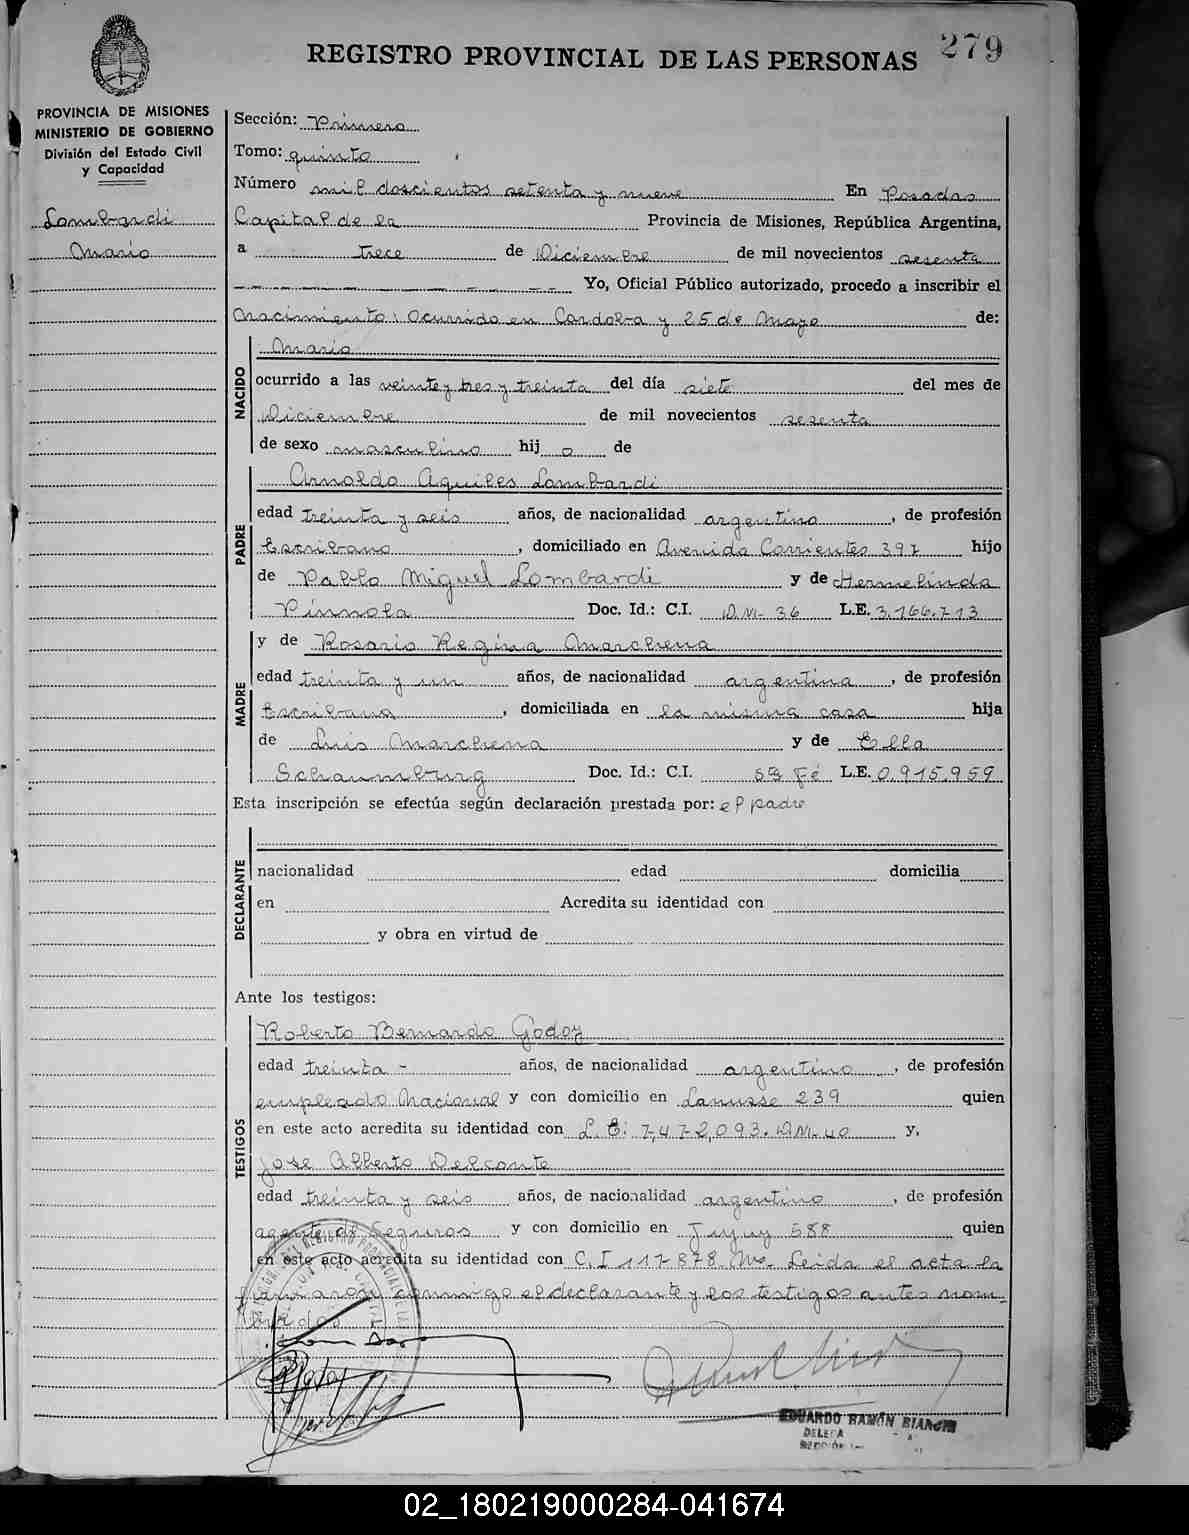 279
REGISTRO PROVINCIAL DE LAS PERSONAS
PROVINCIA DE MISIONES
MINISTERIO DE GOBIERNO
División del Estado Civil
y Capacidad
Lombardi
Mario
Sección: Primera
Tomo: quinto
Número mil doscientos setenta y nueve En Posadas
Capital de la Provincia de Misiones, República Argentina,
a trece de Diciembre de mil novecientos sesenta
Yo, Oficial Público autorizado, procedo a inscribir el
Nacimiento: Ocurrido en Cordoba y 25 de Mayo de:
NACIDO
Mario
ocurrido a las veinte y tres y treinta del día siete del mes de
Diciembre de mil novecientos sesenta
de sexo masculino hij o de
PADRE
Arnoldo Aquiles Lombardi
edad treinta y seis años, de nacionalidad argentino, de profesión
Escribano, domiciliado en Avenida Corrientes 397 hijo
de Pablo Miguel Lombardi y de Hermelinda
Pinnola Doc. Id.: C.I. D.M. 36 L.E. 3.166.713
MADRE
y de Rosario Regina Marchena
edad treinta y un años, de nacionalidad argentina, de profesión
Escribana, domiciliada en la misma casa hija
de Luis Marchena y de Ella
Schaumburg Doc. Id.: C.I. Sta Fé L.E. 0.915.959
Esta inscripción se efectúa según declaración prestada por: el padre
DECLARANTE
nacionalidad edad domicilia
en Acredita su identidad con
y obra en virtud de
Ante los testigos:
TESTIGOS
Roberto Bernardo Godoy
edad treinta - años, de nacionalidad argentino, de profesión
empleado Nacional y con domicilio en Lanusse 239 quien
en este acto acredita su identidad con L.E: 7,472,093. D.M. 40 y,
Jose Alberto Delconte
edad treinta y seis años, de nacionalidad argentino, de profesión
agente de Seguros y con domicilio en Jujuy 588 quien
en este acto acredita su identidad con C.I 117.878. Ms. Leida el acta la
firmaron conmigo el declarante y los testigos antes nom-
brados
EDUARDO RAMÓN BIANCHI
02_180219000284-041674